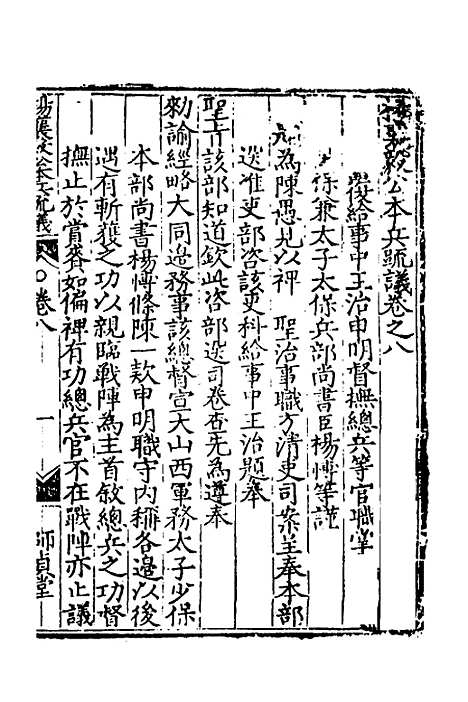 楊襄毅公本兵疏議卷之八
覆給事中王治申明督撫總兵等官職掌
少保兼太子太保兵部尚書臣楊博等謹
題為陳愚見以裨　聖治事職方清吏司案呈奉本部
送准吏部咨該吏科給事中王治題奉
聖旨該部知道欽此咨部送司卷查先為遵奉
勑諭經略大同邊務事該總督宣大山西軍務太子少保
本部尚書楊博條陳一款申明職守內稱各邊以後
遇有斬獲之功以親臨戰陣為主首敘總兵之功督
撫止於賞賚如偏裨有功總兵官不在戰陣亦止議
楊襄毅公本兵疏議　卷八　一　師貞堂